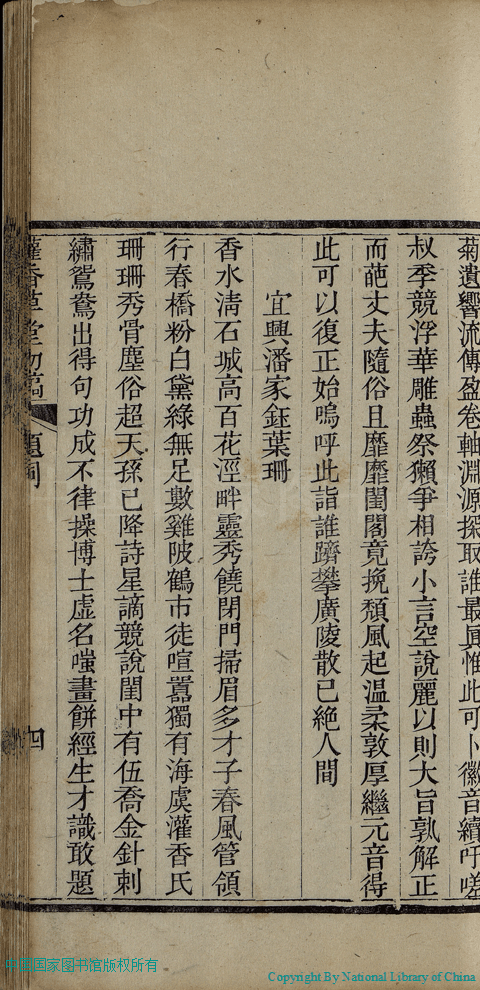 菊遺響流傳盈卷軸淵源探取誰最眞惟此可卜徽音續吁嗟
叔季競浮華雕蟲祭獺爭相誇小言空說麗以則大旨孰解正
而葩丈夫隨俗且靡靡閨閣竟挽頹風起溫柔敦厚繼元音得
此可以復正始嗚呼此詣誰躋攀廣陵散已絕人間
宜興潘家鈺葉珊
香水清石城高百花涇畔靈秀饒閉門掃眉多才子春風管領
行春橋粉白黛綠無足數雞陂鶴市徒喧囂獨有海虞灌香氏
珊珊秀骨塵俗超天孫已降詩星謫競說閨中有伍喬金針刺
繡鴛鴦出得句功成不律操博士虛名嗤畫餅經生才識敢題
灌香草堂初稿 題詞 四
中国国家图书馆版权所有
Copyright By National Library of China